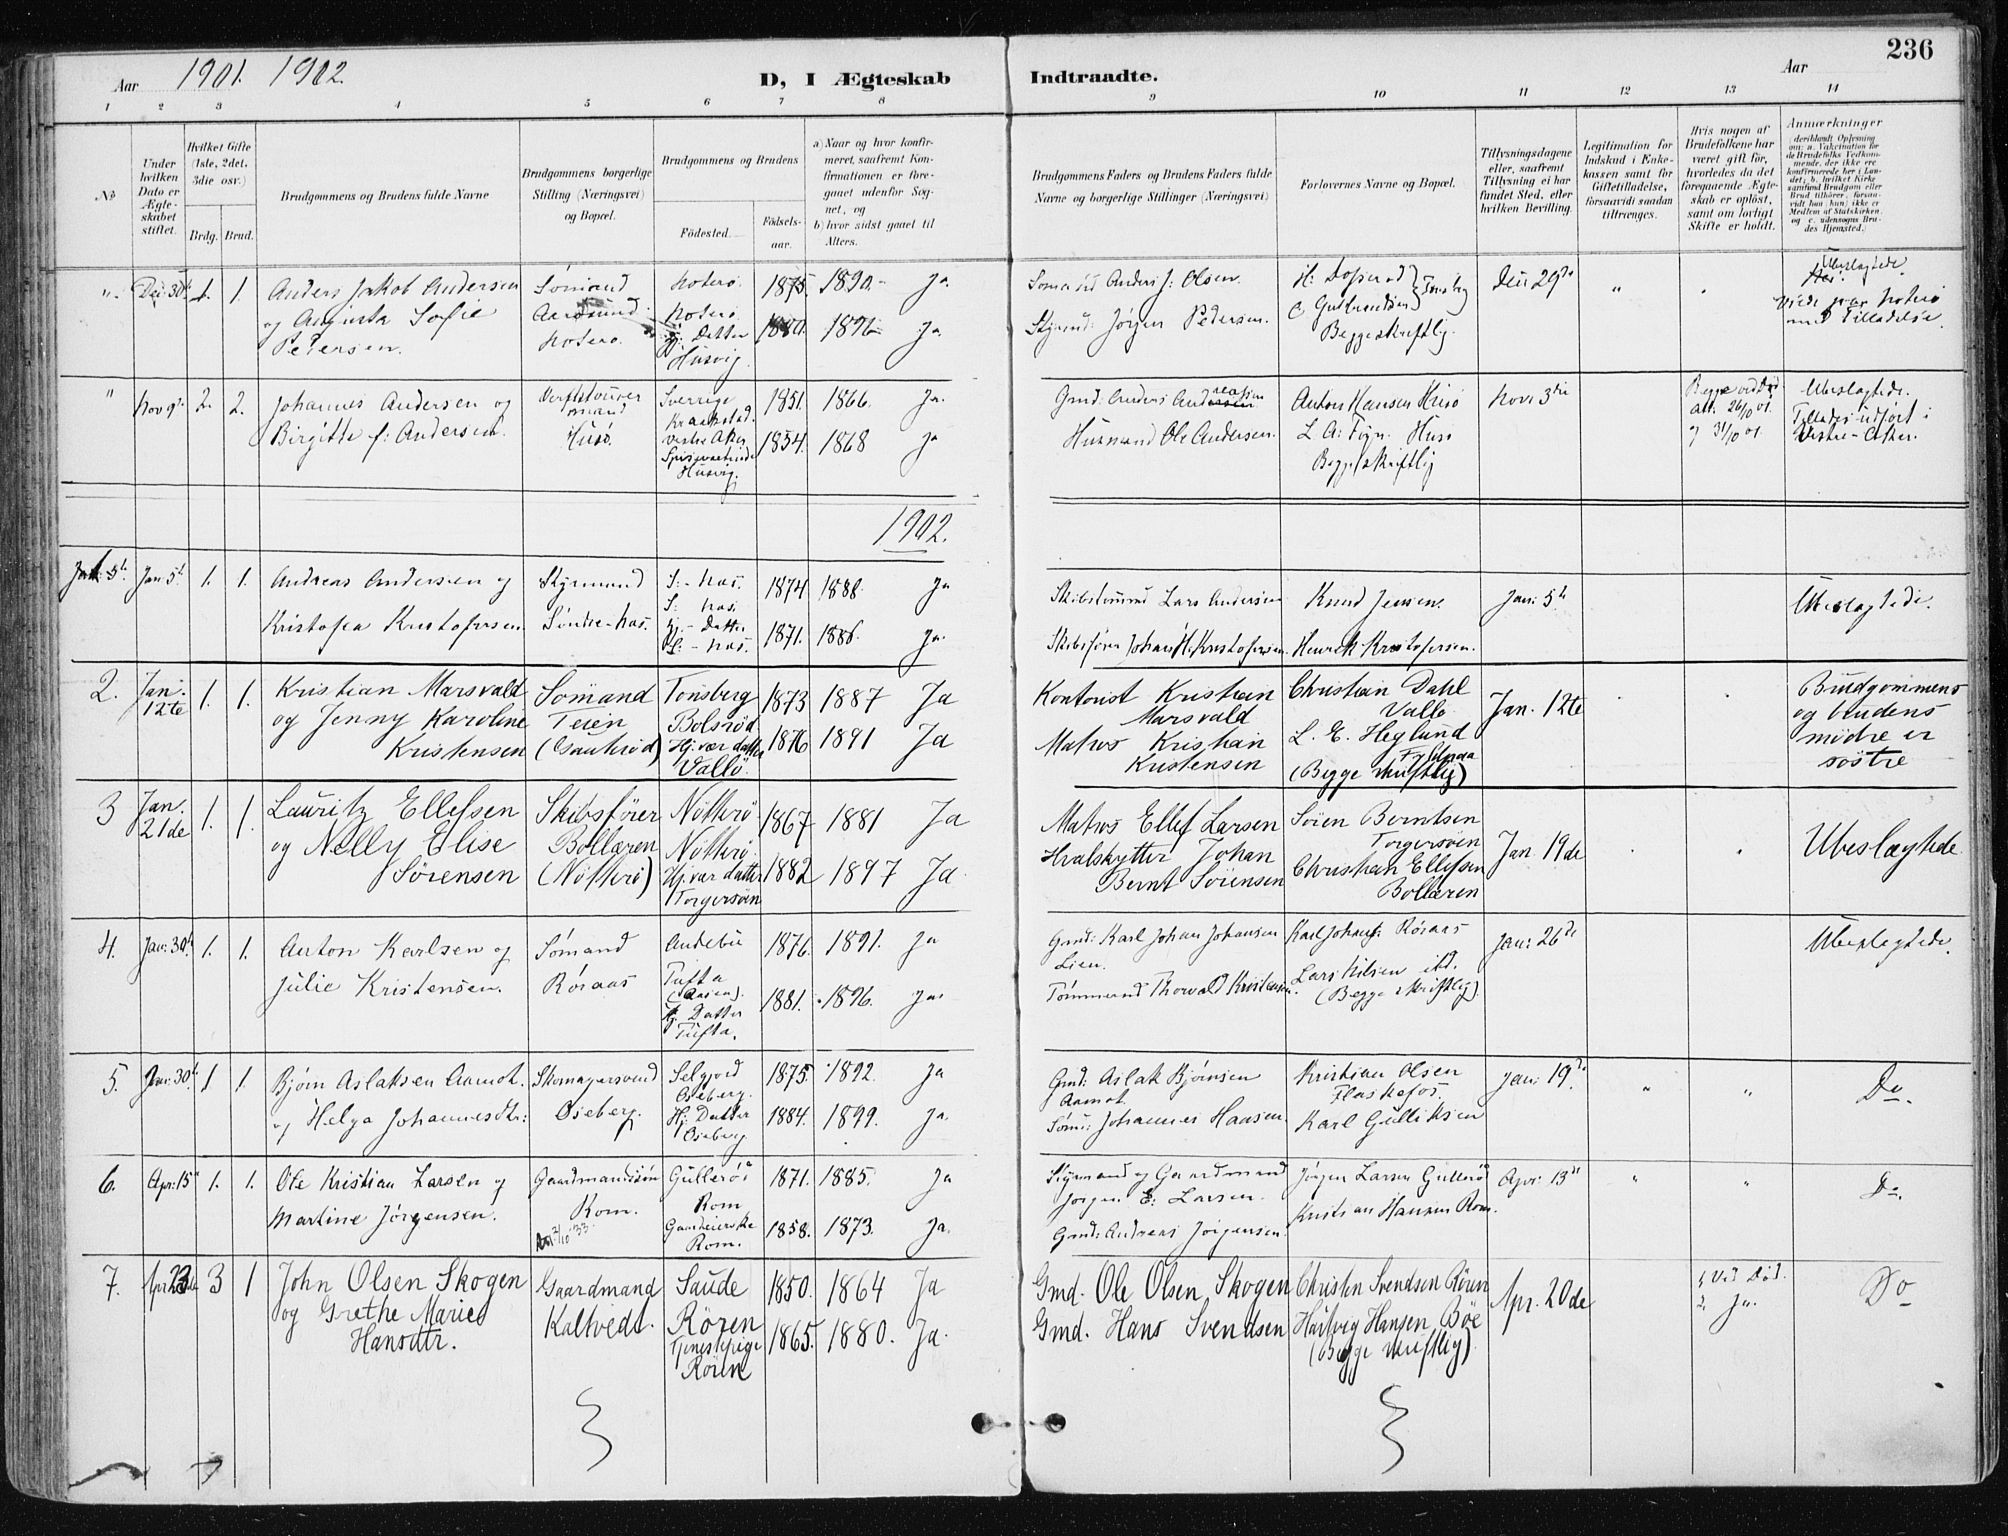 236
Aar 1901. 1902.
D, I Ægteskab Indtraadte.
Aar
1 2 3 4 5 6 7 8 9 10 11 12 13 14
No
Under hvilken Dato er Ægteskabet stiftet.
Hvilket Gifte (1ste, 2det, 3die osv.)
Brdg. Brud.
Brudgommens og Brudens fulde Navne
Brudgommens borgerlige Stilling (Næringsvei) og Bopæl.
Brudgommens og Brudens
Födested.
Födsels-aar.
a) Naar og hvor konfirmeret, saafremt Konfirmationen er foregaaet udenfor Sognet, og
b) hvor sidst gaaet til Alters.
Brudgommens Faders og Brudens Faders fulde Navne og borgerlige Stillinger (Næringsvei)
Forlovernes Navne og Bopæl.
Tillysningsdagene eller, saafremt Tillysning ei har fundet Sted, efter hvilken Bevilling.
Legitimation for Indskud i Enkekassen samt for Giftetilladelse, forsaavidt saadan tiltrænges.
Hvis nogen af Brudefolkene har været gift før, hvorledes da det foregaaende Ægteskab er oplöst, samt om lovligt Skifte er holdt.
Anmærkninger
(deriblandt Oplysning om: a. Vakcination for de Brudefolks Vedkommende, der ikke ere konfirmerede her i Landet; b. hvilket Kirkesamfund Brudgom eller Brud tilhører, forsaavidt han (hun) ikke er Medlem af Statskirken, og c. udensogns Brudes Hjemsted.)
Anders Jakob Andersen
og Augusta Sofie
Petersen.
Sömand
Nøterø.
Nøterø.
Nøterø
Hj. Datter
Husvig.
1875. 1890. Ja.
1880. 1896 Ja.
Sømand Anders J: Olsen.
Styrmd: Jørgen Pedersen.
Begge skriftlig.
Dec 29de
Ubeslegtede.
med Tilladelse.
" Nov 9de 2. 2.
Johannes Andersen og
Birgitte f: Andersen.
Husø.
Sverrige
Kraakstad.
Vestre Aker
Husvig.
1851. 1866. Ja.
1854. 1868 Ja
Husmand Ole Andersen.
Anton Hansen Husø
Husø
Begge skriftlig
Nov: 3die
Begge ved Død
Att. 26/10 01.
og 31/10 01.
Ubeslegtede.
Vestre-Aker.
1902.
Jan: 5te 1. 1.
Andreas Andersen og
Kristofea Kristofersen
Styrmand
Søndre-Nas.
S: - Nas.
S: Nas.
Hj. - Datter
S: - Nas.
1874 1888. Ja
1871. 1886. Ja.
Lars Andersen
Skibsfører Johan H. Kristofersen.
Knud Jensen.
Henrik Kristofersen.
Jan: 5te
Ubeslegtede.
2. Jan. 12te 1. 1.
Kristian Marsvald
og Jenny Karoline
Kristensen
Sømand
Teien
Tønsberg
Bolsrød
Hj. vær. datter
Vallø
1873 1887 Ja
1876 1891 Ja
Kontorist Kristian
Marsvald
Matros Kristian
Kristensen
Christian Dahl
Vallø
L. E. Heglund
(Begge skriftlig)
Jan. 12te
Brudgommens
og brudens
mødre er
søstre
3 Jan. 21de 1. 1.
Lauritz Ellefsen
og Nelly Elise
Sørensen
Skibsfører
Bollæren
(Nøtterø)
Nøtterø
Nøtterø.
Hj. vær. datter
Torgersøen
1867 1881 Ja
1882 1897 Ja
Matros Ellef Larsen
Hvalskytter Johan
Bernt Sørensen
Søren Berntsen
Torgersøen
Christian Ellefsen
Bollæren
Jan. 19de
Ubeslægtede
4. Jan: 30te 1. 1.
Anton Karlsen og
Julie Kristensen.
Sømand
Røraas
Andebu
Tufta
Hj. Datter
Tufta.
1876. 1891. Ja
1881. 1896. Ja.
Gmd: Karl Johan Johansen
Lien.
Tømmermd Thorvald Kristensen.
Karl Johans: Røraas
Lars Nilsen ibd.
(Begge skriftlig).
Jan: 26de
Ubeslegtede.
5. Jan: 30te 1. 1.
Bjørn Aslaksen Aamot.
og Helga Johannesdtr:
Skomagersvend
Oseberg.
Selgjord
Oseberg.
Hj: Datter
Oseberg.
1875. 1892. Ja
1884. 1899. Ja.
Gmd: Aslak Bjørnsen
Aamot.
Sømd: Johannes Hansen.
Kristian Olsen
Karl Gulliksen
Jan: 19de " "
Do.
6. Apr: 15de 1. 1.
Ole Kristian Larsen og
Martine Jørgensen.
Gaardmandssøn
Rom.
Gullerød
Rom
Gaardeierske
Rom.
1871. 1885. Ja
1858. 1873. Ja.
Styrmand og Gaardmand
Jørgen E: Larsen.
Gmd: Andreas Jørgensen.
Jørgen Larsen Gullerød
Kristian Hansen Rom.
Apr: 13de " "
Do.
7. Apr. 23de 3 1
John Olsen Skogen
og Grethe Marie
Hansdtr.
Gaardmand
Kaltvedt.
Saude
Røren
Tjenestepige
Røren
1850. 1864 Ja
1865. 1880. Ja.
Gmd. Ole Olsen Skogen
Gmd. Hans Svendsen
Christen Svendsen Røren
Hartvig Hansen Bøe
(Begge skriftlig)
Apr. 20de
1. Ved Død.
2. Ja.
Do